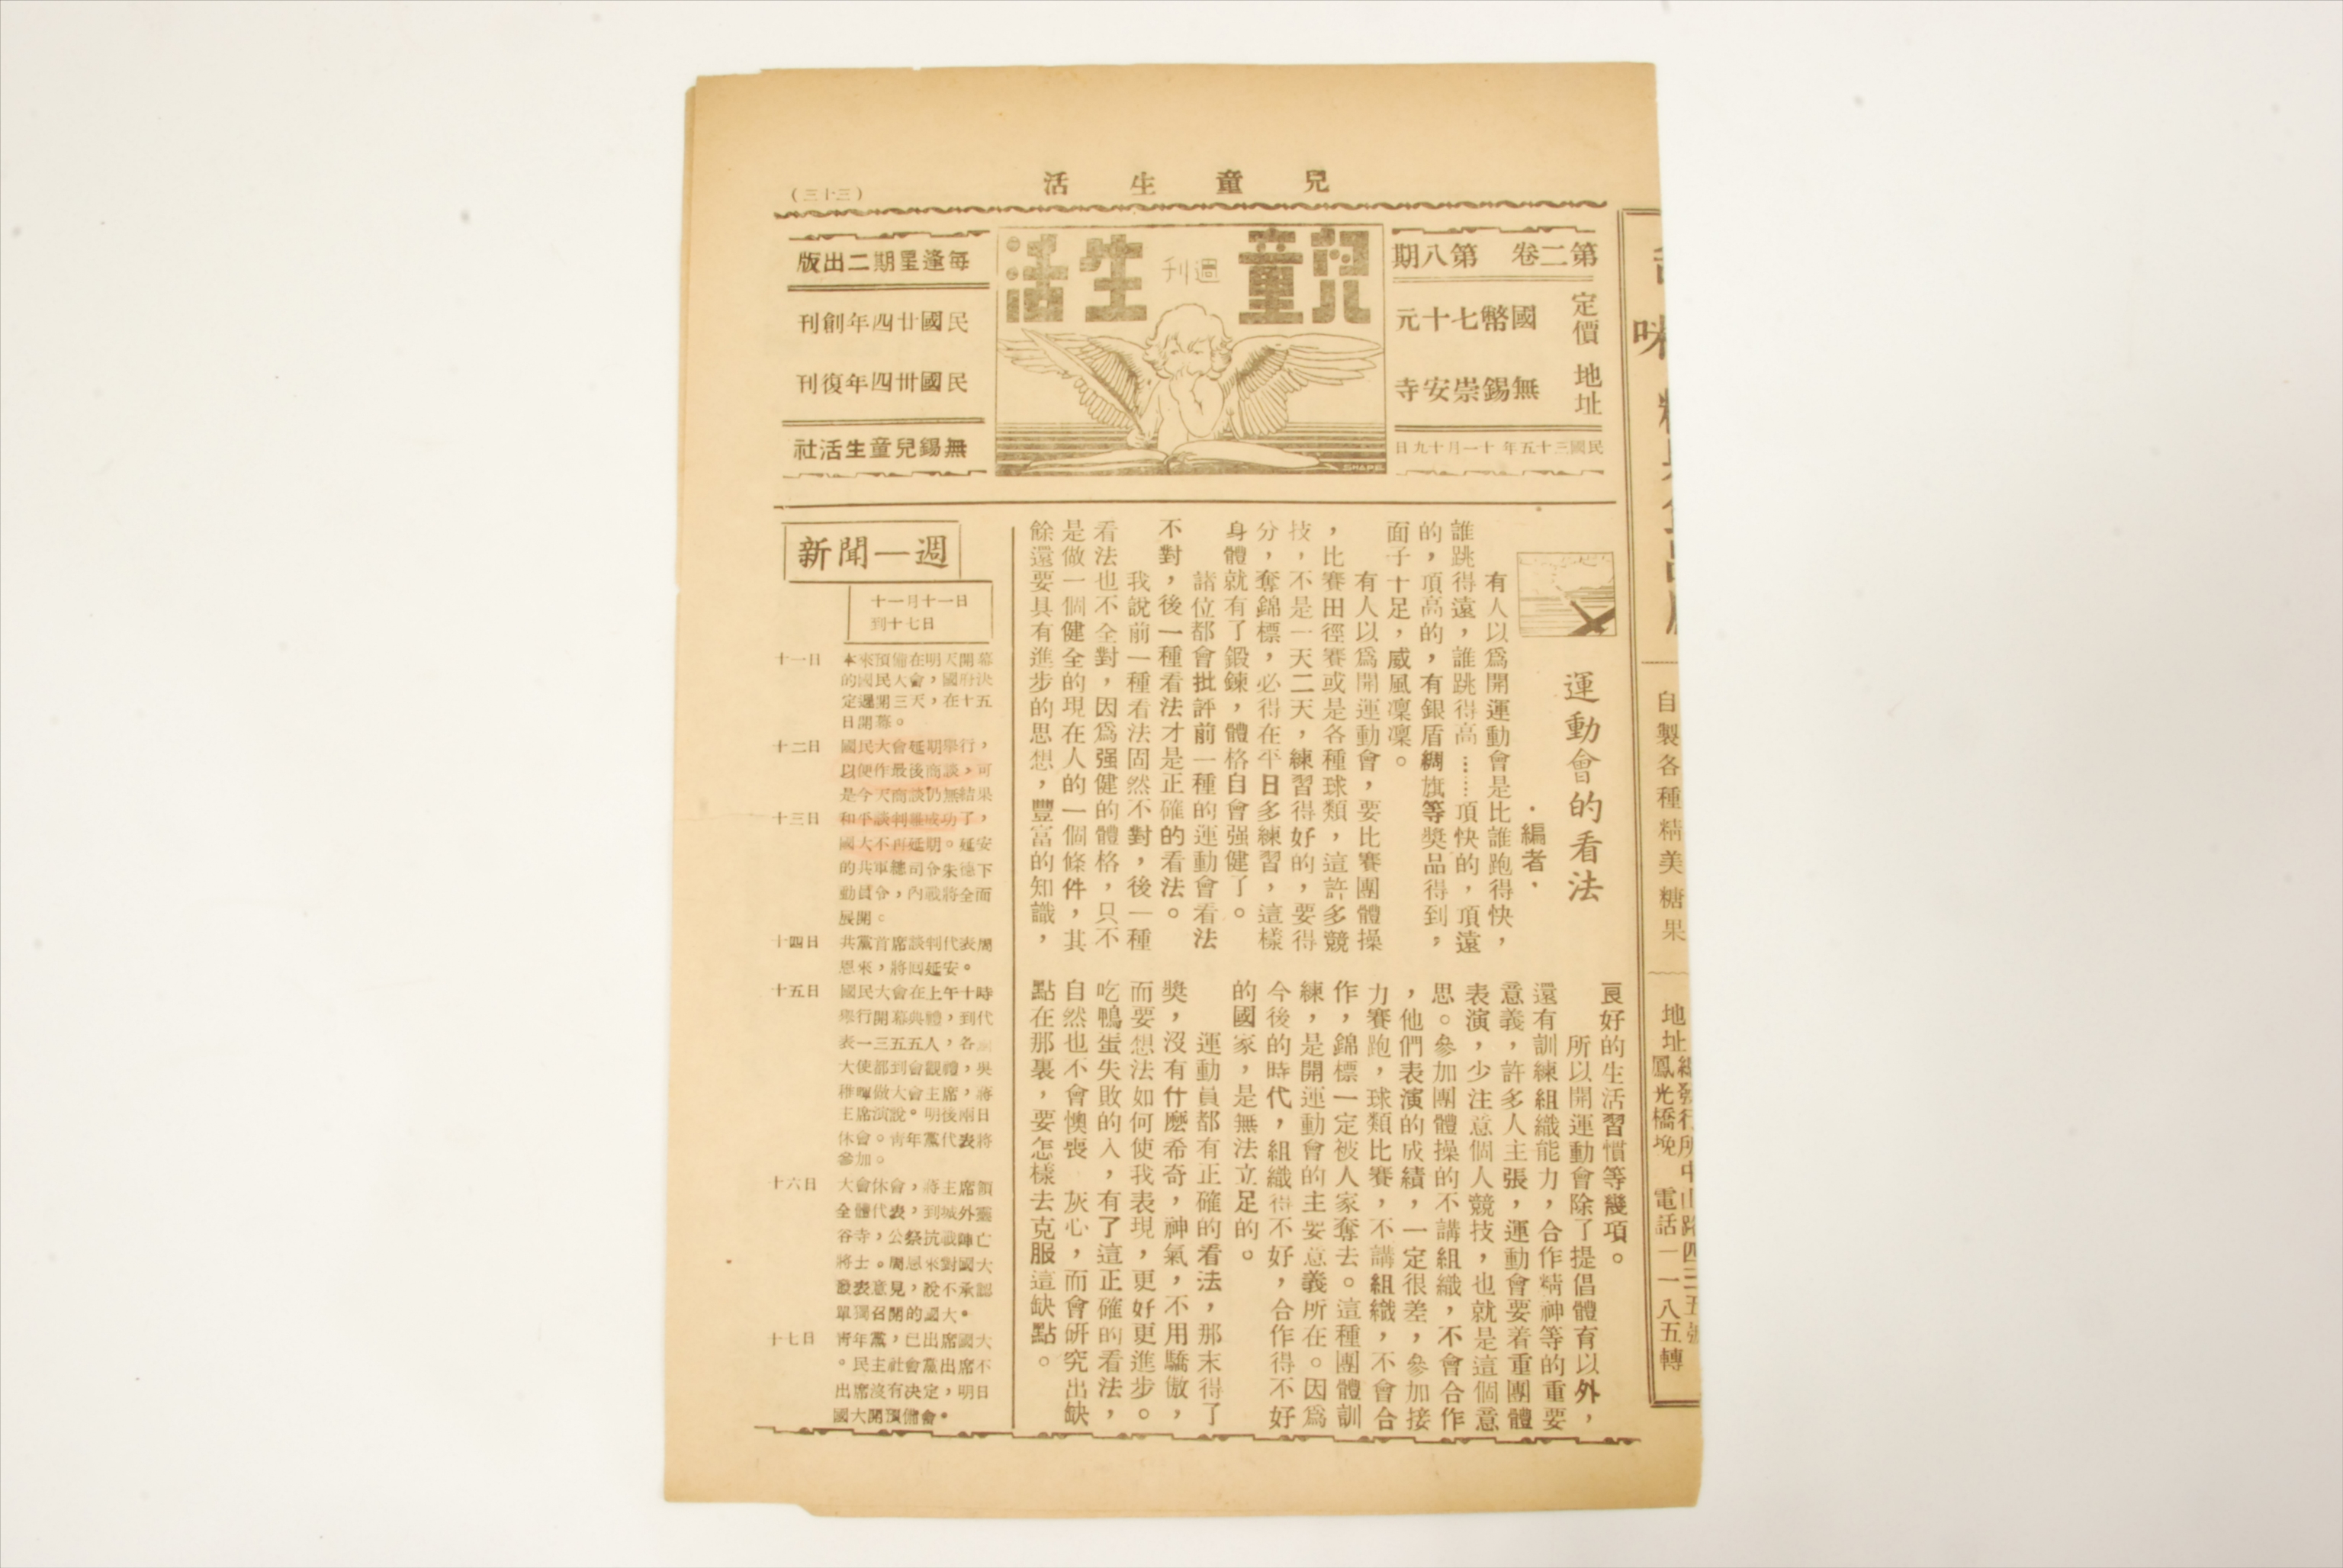 兒童生活
(三十三)
第二卷 第八期
定價 國幣七十元
地址 無錫崇安寺
民國三十五年十一月十九日
兒童生活
週刊
SHAPE
每逢星期二出版
民國廿四年創刊
民國卅四年復刊
無錫兒童生活社
運動會的看法
·編者·
有人以爲開運動會是比誰跑得快，
誰跳得遠，誰跳得高……頂快的，頂遠
的，頂高的，有銀盾綢旗等獎品得到，
面子十足，威風凜凜。
有人以爲開運動會，要比賽團體操
，比賽田徑賽或是各種球類，這許多競
技，不是一天二天，練習得好的，要得
分，奪錦標，必得在平日多練習，這樣
身體就有了鍛鍊，體格自會强健了。
諸位都會批評前一種的運動會看法
不對，後一種看法才是正確的看法。
我說前一種看法固然不對，後一種
看法也不全對，因爲强健的體格，只不
是做一個健全的現在人的一個條件，其
餘還要具有進步的思想，豐富的知識，
良好的生活習慣等幾項。
所以開運動會除了提倡體育以外，
還有訓練組織能力，合作精神等的重要
意義，許多人主張，運動會要着重團體
表演，少注意個人競技，也就是這個意
思。參加團體操的不講組織，不會合作
，他們表演的成績，一定很差，參加接
力賽跑，球類比賽，不講組織，不會合
作，錦標一定被人家奪去。這種團體訓
練，是開運動會的主要意義所在。因爲
今後的時代，組織得不好，合作得不好
的國家，是無法立足的。
運動員都有正確的看法，那末得了
獎，沒有什麼希奇，神氣，不用驕傲，
而要想法如何使我表現，更好更進步。
吃鴨蛋失敗的人，有了這正確的看法，
自然也不會懊喪 灰心，而會研究出缺
點在那裏，要怎樣去克服這缺點。
新聞一週
十一月十一日
到十七日
十一日 本來預備在明天開幕
的國民大會，國府決
定遲開三天，在十五
日開幕。
十二日 國民大會延期舉行，
以便作最後商談，可
是今天商談仍無結果
十三日 和平談判難成功了，
國大不再延期。延安
的共軍總司令朱德下
動員令，內戰將全面
展開。
十四日 共黨首席談判代表周
恩來，將回延安。
十五日 國民大會在上午十時
舉行開幕典禮，到代
表一三五五人，各
大使都到會觀禮，吳
稚暉做大會主席，蔣
主席演說。明後兩日
休會。青年黨代表將
參加。
十六日 大會休會，蔣主席領
全體代表，到城外靈
谷寺，公祭抗戰陣亡
將士。周恩來對國大
發表意見，說不承認
單獨召開的國大。
十七日 青年黨，已出席國大
。民主社會黨出席不
出席沒有決定，明日
國大開預備會。
自製各種精美糖果
地址
總發行所中山路四三五號
鳳光橋堍 電話一一八五轉